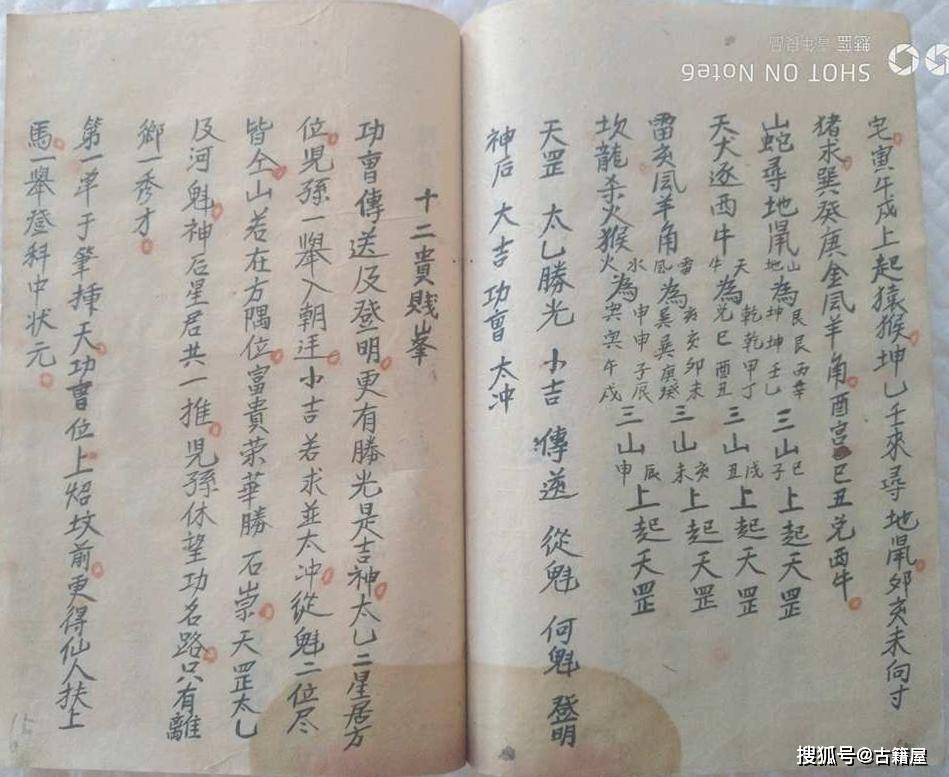 宅寅午戌上起猿猴坤乙壬來尋地鼠夘亥未向寸
猪求巽癸庚金風羊角酉宫巳丑兑西牛
山蛇尋地鼠山地為艮艮丙辛坤坤壬乙三山巳子上起天罡
天犬逐西牛天牛為乾乾甲丁兑巳酉丑三山戌丑上起天罡
雷亥風羊角雷風為亥亥卯未巽巽庚癸三山亥未上起天罡
坎龍杀火猴水火為申申子辰寅寅午戌三山辰申上起天罡
天罡 太乙勝光 小吉 傳送 從魁 何魁 登明
神后 大吉 功曹 太冲
十二貴賤峯
功曹傳送及登明更有勝光是吉神太乙二星居方
位児孫一舉入朝廷小吉若求並太冲從魁二位尽
皆仝山若在方隅位富貴荣華勝石崇天罡太乙
及河魁神后星居共一推児孫休望功名路只有離
鄉一秀才
第一单于筆揷天功曹位上炤坟前更得仙人扶上
馬一舉登科中状元
SHOT ON Note6
搜狐号@古籍屋